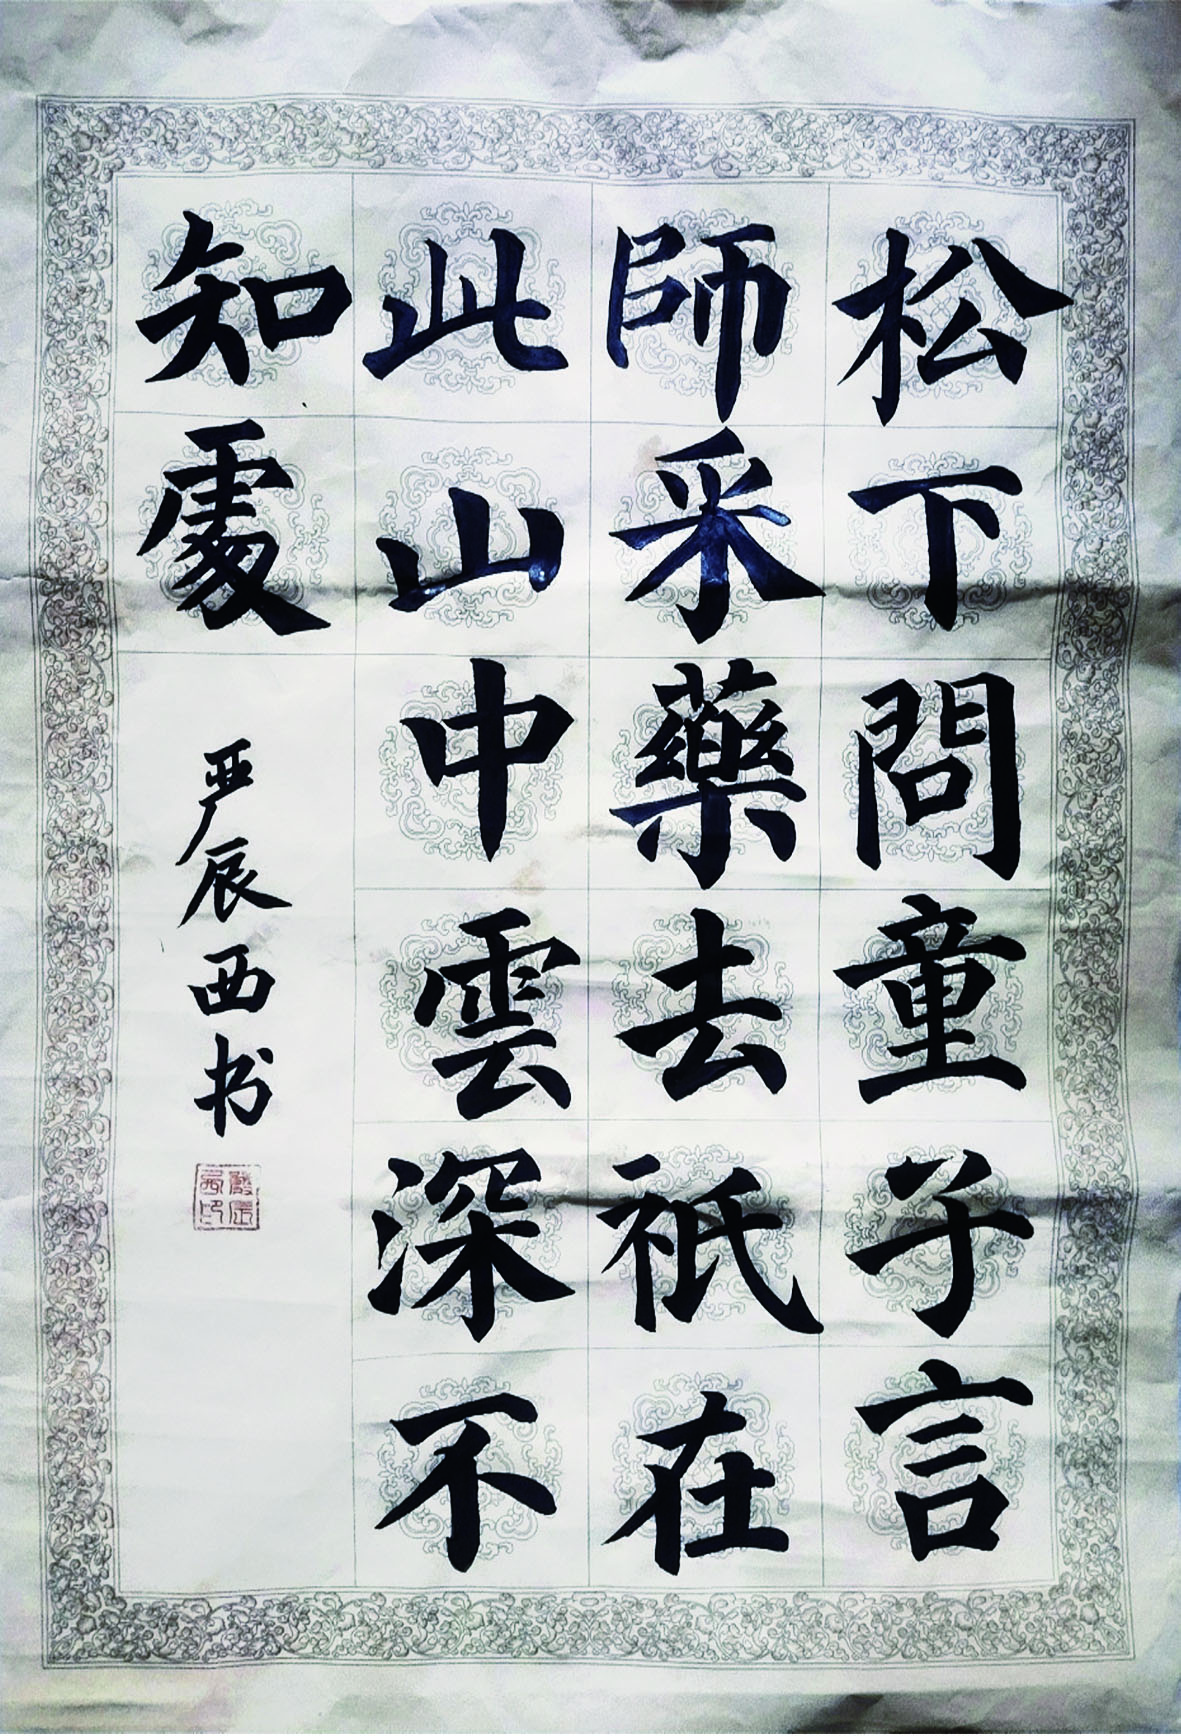 松下問童子言
師采藥去祇在
此山中雲深不
知處
严辰西书